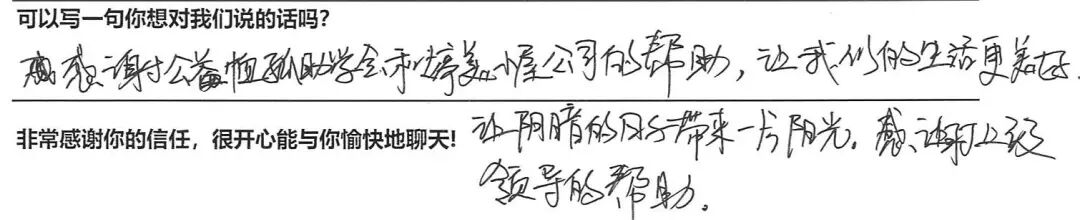 可以写一句你想对我们说的话吗?
感感谢寸公益恤孤助学会和婷美小屋公司的帮助，让我们的生活更美好.
非常感谢你的信任，很开心能与你愉快地聊天! 让阴暗的日子带来一片阳光。感谢上级
领导的帮助。